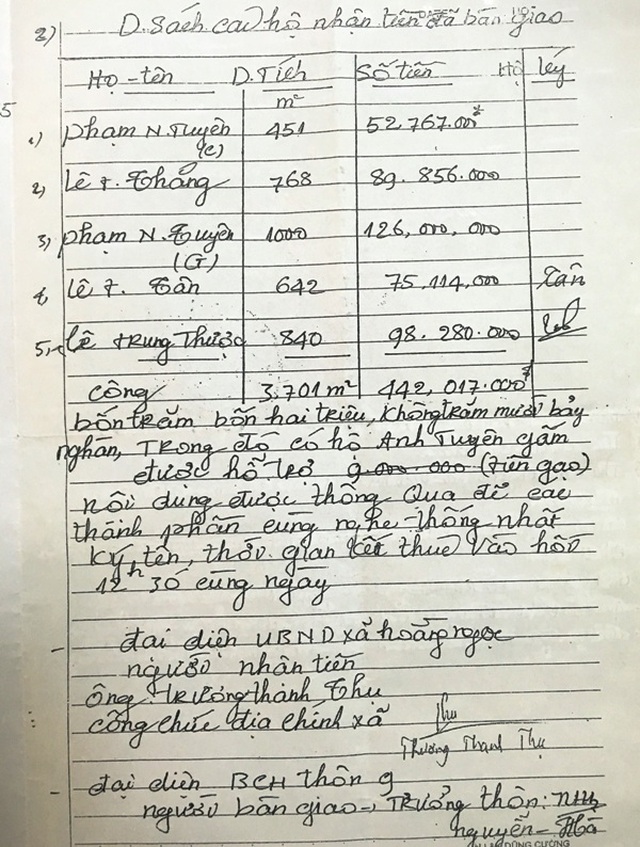 2) D. Sách các hộ nhận tiền đã bàn giao
Họ-tên D. Tích m² Số tiền Hộ ký
1) phạm N. Tuyên (C) 451 52.767.00đ
2, Lê T. Thắng 768 89.856.000
3, phạm N. Tuyên (G) 1000 126,000,000
4 Lê T. Tân 642 75,114,000 Tân
5, Lê Trung Thược 840 98.280.000
Cộng 3.701 m² 442,017.000đ
bốn trăm bốn hai triệu, không trăm mười bảy
nghàn, Trong đó có hộ Anh Tuyên gấm
được hỗ trợ 9.000.000 (tiền gạo)
nội dung được thông qua để các
thành phần cùng nghe thống nhất
ký, tên, thời gian kết thúc vào hồi
12h 30 cùng ngày
- đại diện UBND xã hoằng ngọc
người nhận tiền
ông: Trương thành Thụ
công chức địa chính xã
Thụ
Trương Thanh Thụ
- đại diện BCH thôn 9
người bàn giao -, Trưởng thôn:
nguyễn - Hà
DŨNG CƯỜNG